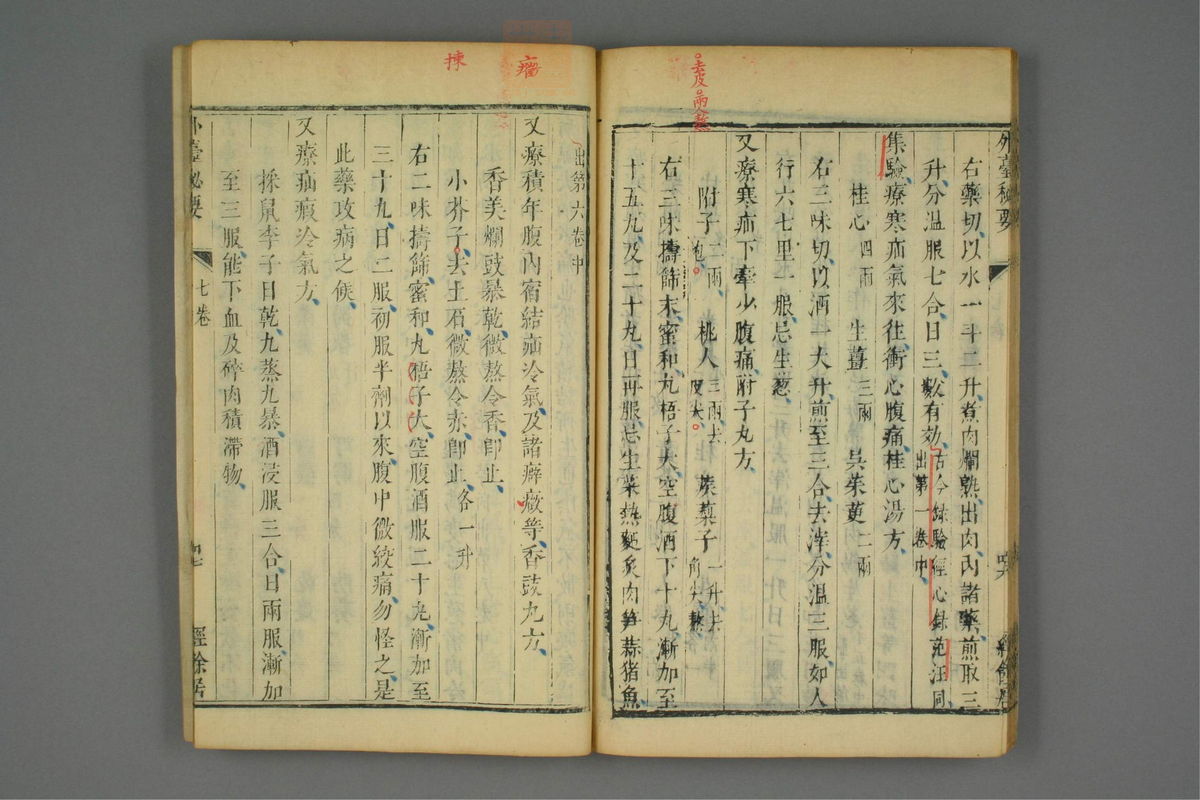 外臺秘要
右藥切以水一斗二升煮肉爛熟出肉內諸藥煎取三
升分溫服七合日三數有效古今錄驗經心錄范汪同
出第一卷中
集驗療寒疝氣來往衝心腹痛桂心湯方
桂心四兩 生薑三兩 吳茱萸二兩
右三味切以酒一大升煎至三合去滓分溫三服如人
行六七里一服忌生葱
又療寒疝下牽少腹痛附子丸方
附子二兩炮 桃人三兩去皮尖 蒺蔾子一升去角尖熬
右三味擣篩末蜜和丸梧子大空腹酒下十丸漸加至
十五丸及二十丸日再服忌生菜熱麪炙肉笋蒜猪魚
去皮兩熬
出第六卷中
又療積年腹內宿結疝冷氣及諸癖癥等香豉丸方
香美爛豉暴乾微熬令香卽止
小芥子去土石微熬令赤卽止各一升
右二味擣篩蜜和丸梧子大空腹酒服二十丸漸加至
三十丸日二服初服半劑以來腹中微絞痛勿怪之是
此藥攻病之候
又療疝瘕冷氣方
採鼠李子日乾九蒸九暴酒浸服三合日兩服漸加
至三服能下血及碎肉積滯物
外臺秘要
七卷
經餘居
瘤
揀